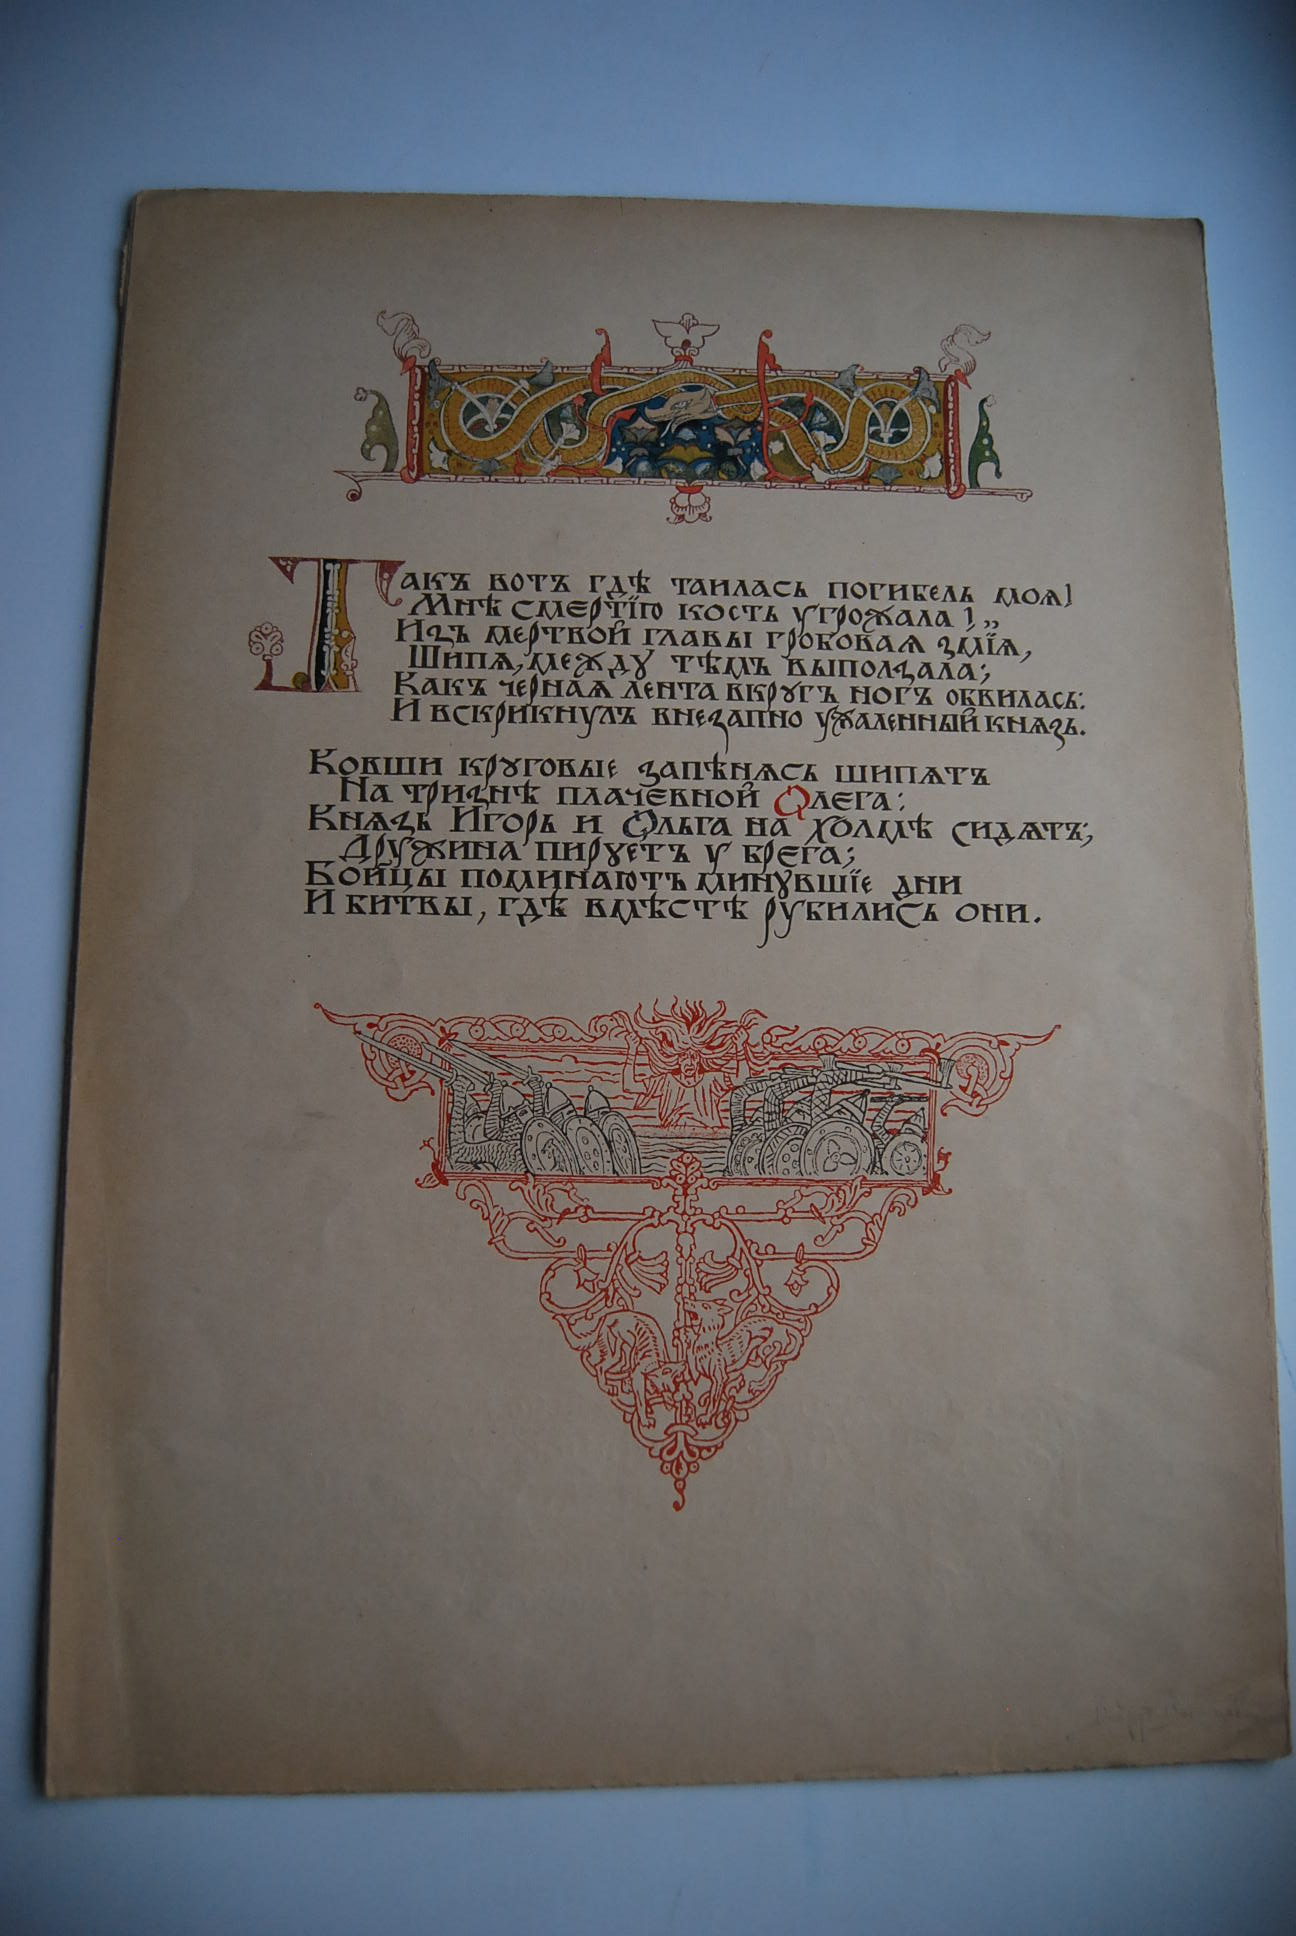 Такъ вотъ гдѣ таилась погибель моя!
Мнѣ смертію кость угрожала!„
Изъ мертвой главы гробовая змія,
Шипя, между тѣмъ выползала;
Какъ черная лента вкругъ ногъ обвилась:
И вскрикнулъ внезапно ужаленный князь.
Ковши круговые запѣнясь шипятъ
На тризнѣ плачевной Олега:
Князь Игорь и Ольга на холмѣ сидятъ;
Дружина пируетъ у брега;
Бойцы поминаютъ минувшіе дни
И битвы, гдѣ вмѣстѣ рубились они.